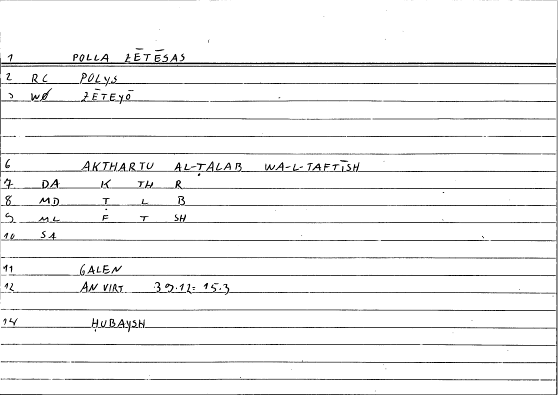 1 POLLA ZĒTĒSAS
2 RC POLYS
3 WØ ZĒTEYŌ
6 AKTHARTU AL-ṬALAB WA-L-TAFTĪSH
7 DA K TH R
8 MD Ṭ L B
9 ML F T SH
10 SA
11 GALEN
12 AN VIRT 39.12 = 15.3
14 ḤUBAYSH